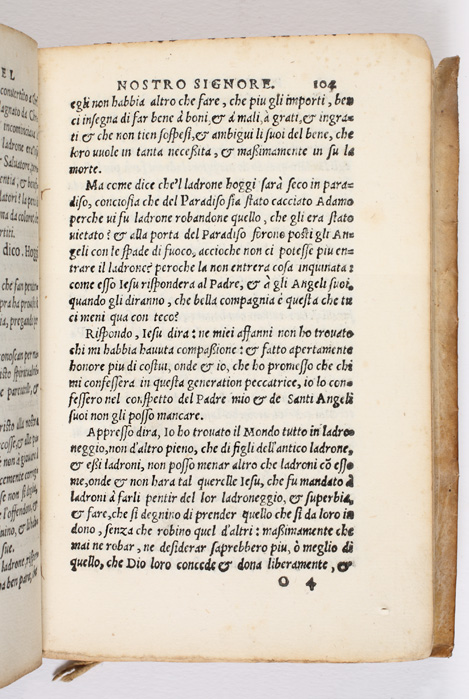 EL
convertito a
dico. Hoggi
NOSTRO SIGNORE. 104
egli non habbia altro che fare, che piu gli importi, ben
ci insegna di far bene à boni, & à mali, à grati, & ingra-
ti & che non tien sospesi, & ambigui li suoi del bene, che
loro uuole in tanta necessita, & maßimamente in su la
morte.
Ma come dice che'l ladrone hoggi sarà seco in para-
diso, conciosia che del Paradiso sia stato cacciato Adamo
perche ui fu ladrone robandone quello, che gli era stato
uietato? & alla porta del Paradiso forono posti gli An-
geli con le spade di fuoco, accioche non ci potesse piu en-
trare il ladrone? peroche la non entrera cosa inquinata:
come esso Iesu rispondera al Padre, & à gli Angeli suoi,
quando gli diranno, che bella compagnia è questa che tu
ci meni qua con teco?
Rispondo, Iesu dira: ne miei affanni non ho trouato
chi mi habbia hauuta compaßione: & fatto apertamente
honore piu di costui, onde & io, che ho promesso che chi
mi confessera in questa generation peccatrice, io lo con-
fessero nel conspetto del Padre mio & de Santi Angeli
suoi non gli posso mancare.
Appresso dira, Io ho trouato il Mondo tutto in ladro-
neggio, non d'altro pieno, che di figli dell'antico ladrone,
& eßi ladroni, non posso menar altro che ladroni cō esso
me, onde & non hara tal querelle Iesu, che fu mandato à
ladroni à farli pentir del lor ladroneggio, & superbia,
& fare, che si degnino di prender quello che si da loro in
dono, senza che robino quel d'altri: maßimamente che
mai ne robar, ne desiderar saprebbero piu, ò meglio di
quello, che Dio loro concede & dona liberamente, &
O 4